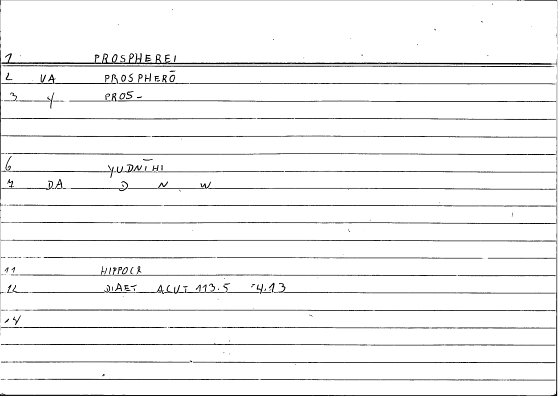 1 PROSPHEREI
2 VA PROSPHERŌ
3 Y PROS-
6 YUDNĪHI
7 DA D N W
11 HIPPOCR
12 DIAET ACUT 113.5 4.13
14